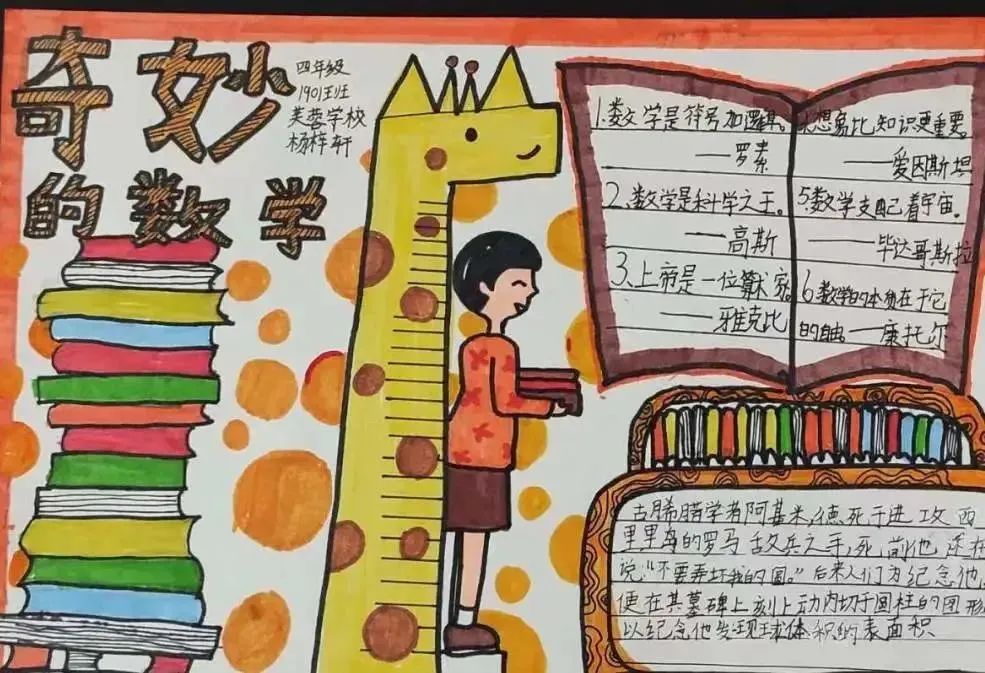 奇妙
的数学
四年级
1901班
芙蓉学校
杨梓轩
1.数学是符号加逻辑。
——罗素
2.数学是科学之王。
——高斯
3.上帝是一位算术家。
——雅克比
想易比知识更重要
——爱因斯坦
5.数学支配着宇宙。
——毕达哥斯拉
6.数学的本质在于它
的自由。——康托尔
古腊学者阿基米,德死于进攻西
里里岛的罗马敌兵之手,死前他还在
说:“不要弄坏我的圆。”后来人们为纪念他,
便在其墓碑上刻上动内切于圆柱的图形
以纪念他发现球体积的表面积